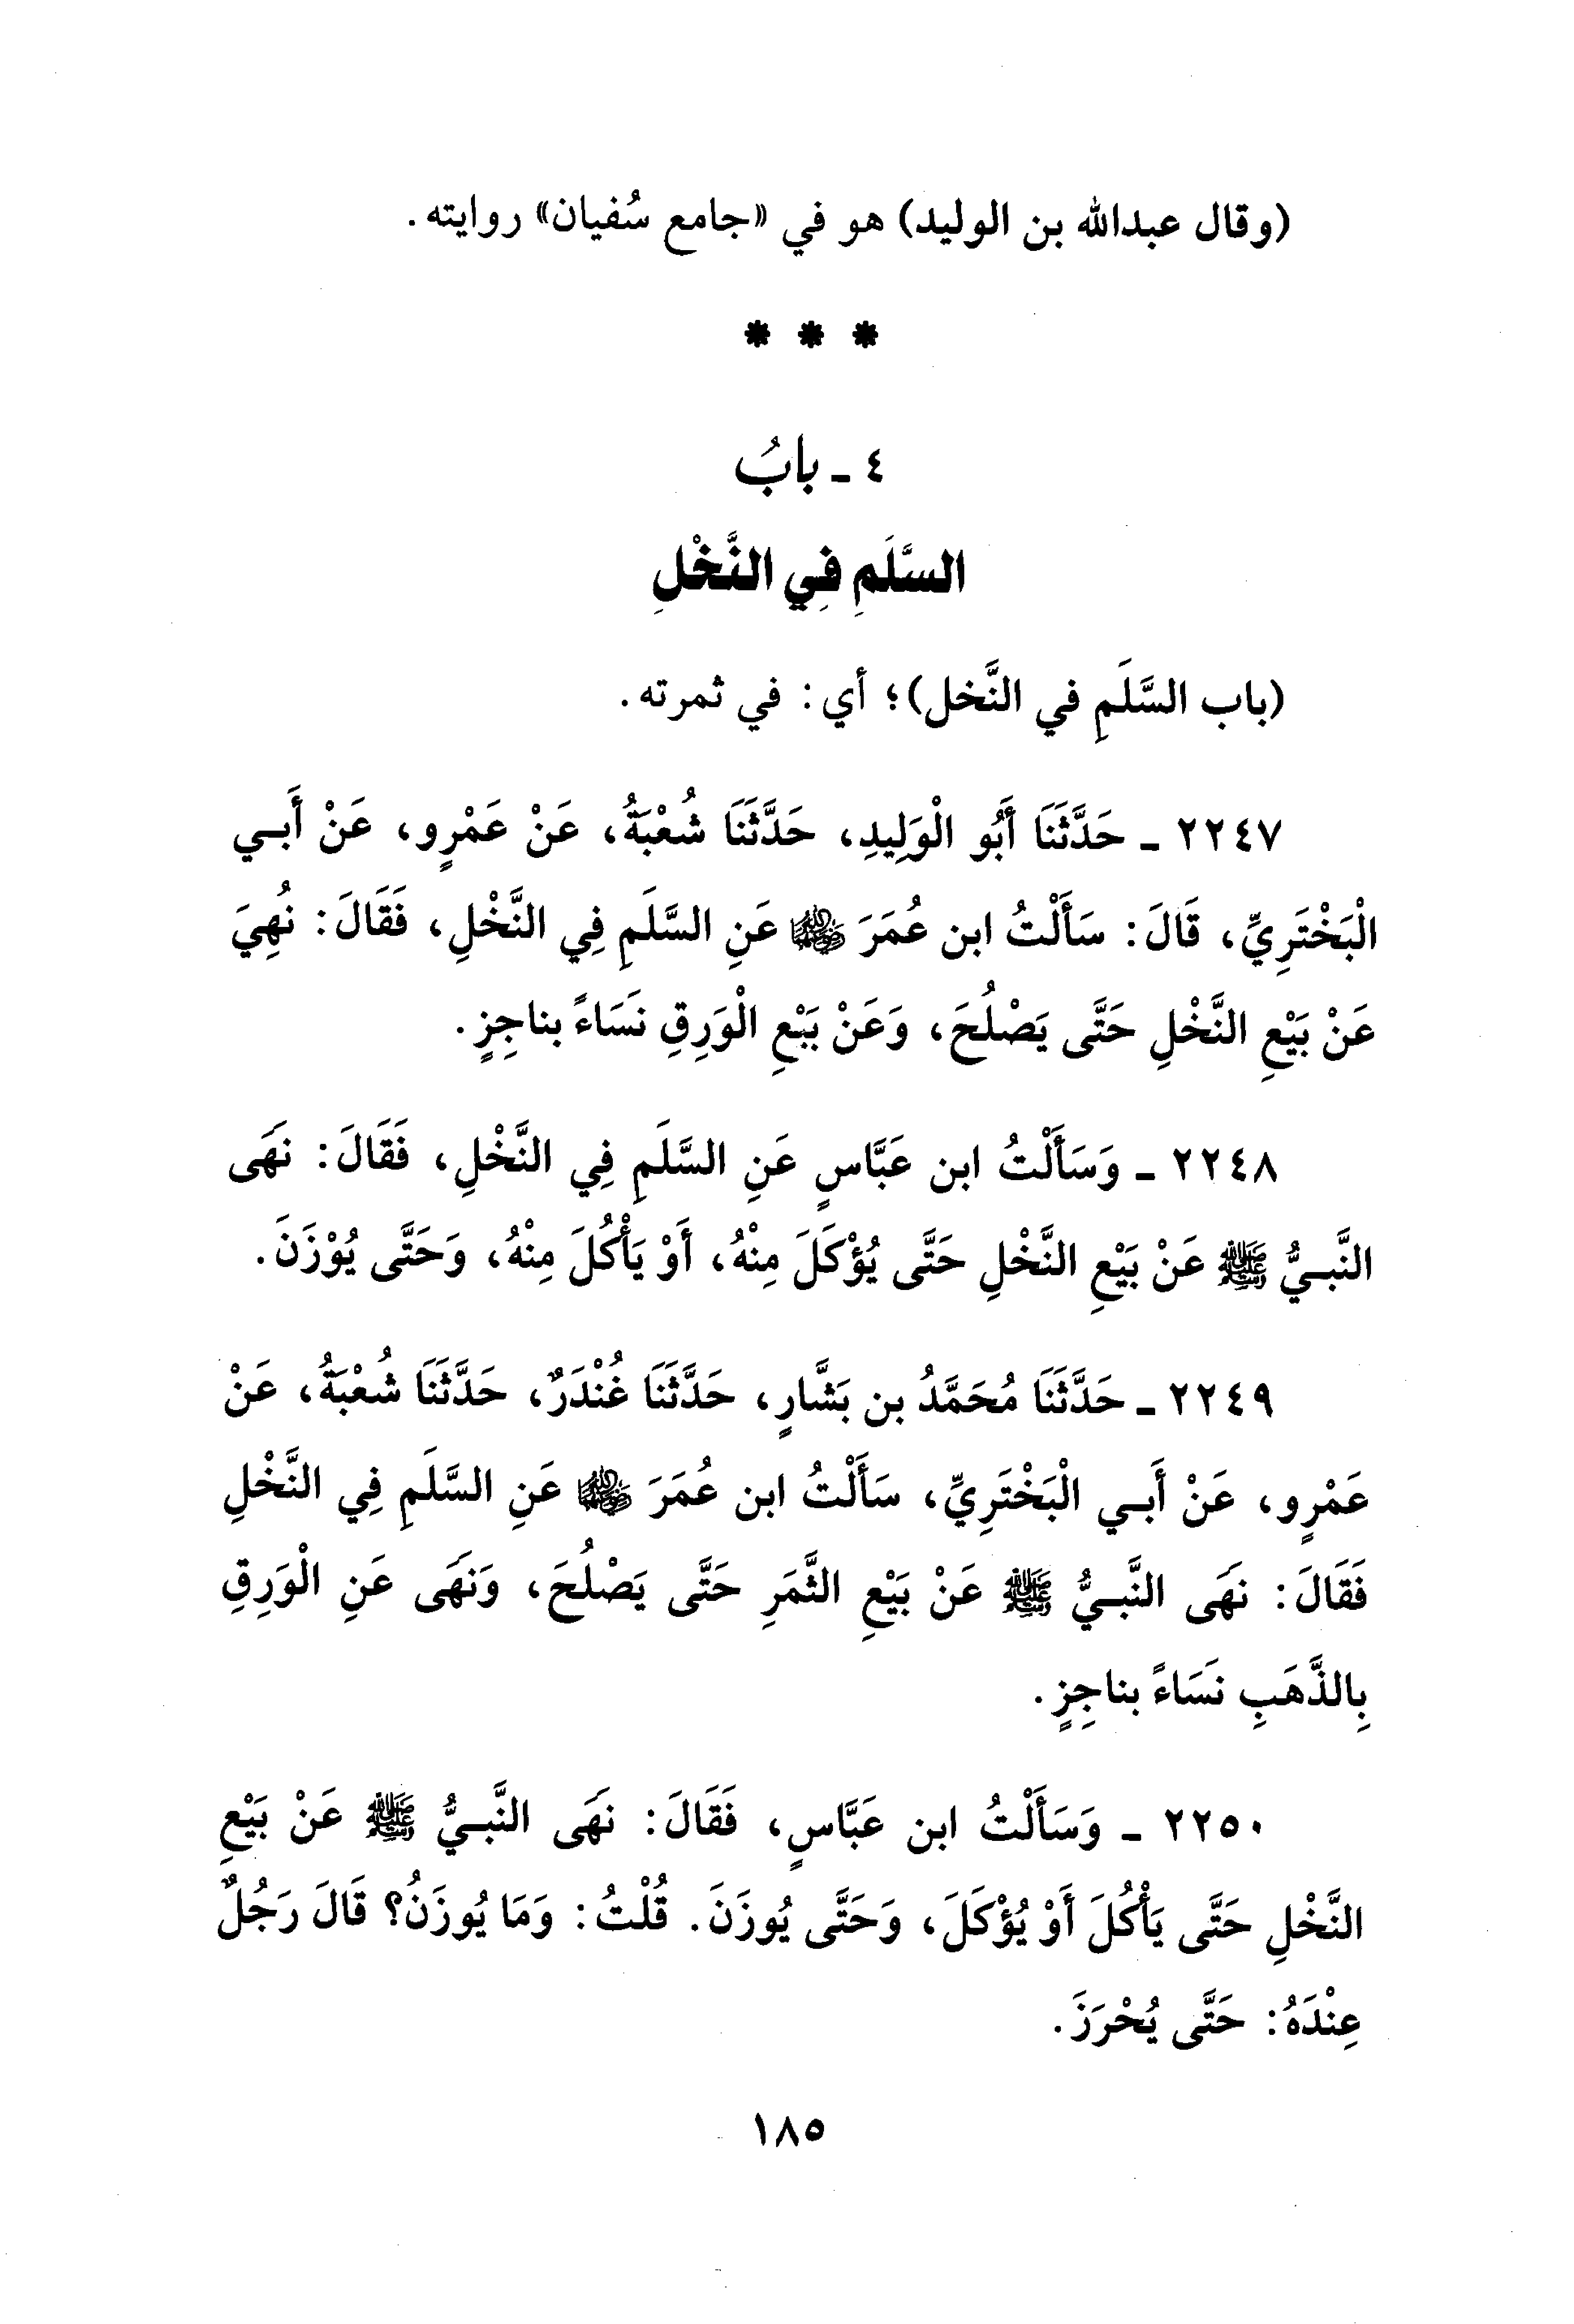 (وقال عبدالله بن الوليد) هو في «جامع سُفيان» روايته.
* * *
٤ ـ بابُ
السَّلَمِ فِي النَّخْلِ
(باب السَّلَمِ في النَّخل)؛ أي: في ثمرته.
٢٢٤٧ ـ حَدَّثَنَا أَبُو الْوَلِيدِ، حَدَّثَنَا شُعْبَةُ، عَنْ عَمْرٍو، عَنْ أَبِي
الْبَخْتَرِيِّ، قَالَ: سَأَلْتُ ابن عُمَرَ ﵁ عَنِ السَّلَمِ فِي النَّخْلِ، فَقَالَ: نُهِيَ
عَنْ بَيْعِ النَّخْلِ حَتَّى يَصْلُحَ، وَعَنْ بَيْعِ الْوَرِقِ نَسَاءً بناجِزٍ.
٢٢٤٨ ـ وَسَأَلْتُ ابن عَبَّاسٍ عَنِ السَّلَمِ فِي النَّخْلِ، فَقَالَ: نَهَى
النَّبيُّ ﷺ عَنْ بَيْعِ النَّخْلِ حَتَّى يُؤْكَلَ مِنْهُ، أَوْ يَأْكُلَ مِنْهُ، وَحَتَّى يُوْزَنَ.
٢٢٤٩ ـ حَدَّثَنَا مُحَمَّدُ بن بَشَّارٍ، حَدَّثَنَا غُنْدَرٌ، حَدَّثَنَا شُعْبَةُ، عَنْ
عَمْرٍو، عَنْ أَبي الْبَخْتَرِيِّ، سَأَلْتُ ابن عُمَرَ ﵁ عَنِ السَّلَمِ فِي النَّخْلِ
فَقَالَ: نَهَى النَّبيُّ ﷺ عَنْ بَيْعِ الثَّمَرِ حَتَّى يَصْلُحَ، وَنَهَى عَنِ الْوَرِقِ
بِالذَّهَبِ نَسَاءً بناجِزٍ.
٢٢٥٠ ـ وَسَأَلْتُ ابن عَبَّاسٍ، فَقَالَ: نَهَى النَّبيُّ ﷺ عَنْ بَيْعِ
النَّخْلِ حَتَّى يَأْكُلَ أَوْ يُؤْكَلَ، وَحَتَّى يُوزَنَ. قُلْتُ: وَمَا يُوزَنُ؟ قَالَ رَجُلٌ
عِنْدَهُ: حَتَّى يُحْرَزَ.
١٨٥